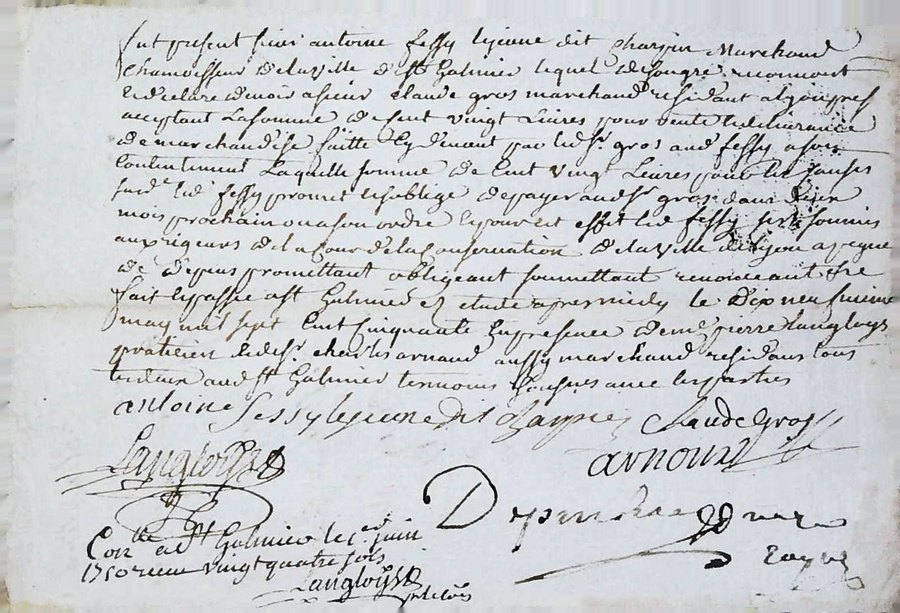 fut present sieur antoine fessy lejeune dit Chazin Marchand
Chamoisseur de la ville de St Galmier lequel de son gré reconnoit
et declare devoir a sieur Claude gros marchand residant a
acceptant La somme de Cent vingt Livres pour vente et delivrance
de marchandise faitte cy devant par led sr gros aud fessy a son
Contentement Laquelle somme de Cent vingt Livres pour les causes
susd led fessy promet et s'oblige de payer aud sr gros dans
mois prochain ou a son ordre et pour cet effet led fessy s'est soumis
aux rigueurs de la Cour de la Conservation de la ville de Lyon a peyne
de depens promettant obligeant soumettant renonceant
fait et passé a St Galmier etude apres midy le Dix neufvieme
may mil sept Cent Cinquante En presence de me pierre Langloys
praticien et de sr charles arnaud aussy marchand residans tous
les deux aud St Galmier temoins soussignes avec les parties
antoine fessy lejeune dit Claude Gros
Langloys arnoux
D
Con a St Galmier le juin
1750 receu vingt quatre sols
Langloys